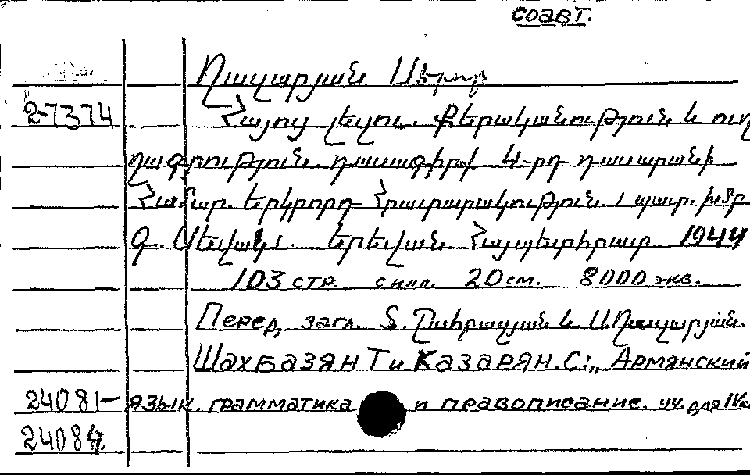 соавт.
Ղազարյան Սերոբ
2-7374 Հայոց լեզու. Քերականություն և ուղ
ղագրություն. դասագիրք 4-րդ դասարանի
համար. երկրորդ հրատարակություն. պատ. խմբ
Գ. Սևակ. Երևան. Հայպետհրատ 1944
103 стр. с илл. 20 см. 8000 экз.
Перед. загл. Տ. Շահբազյան և Ս. Ղազարյան.
Шахбазян Т и Казарян. С:,, Армянский
24081- язык. грамматика и правописание. уч. для IV к
24084.